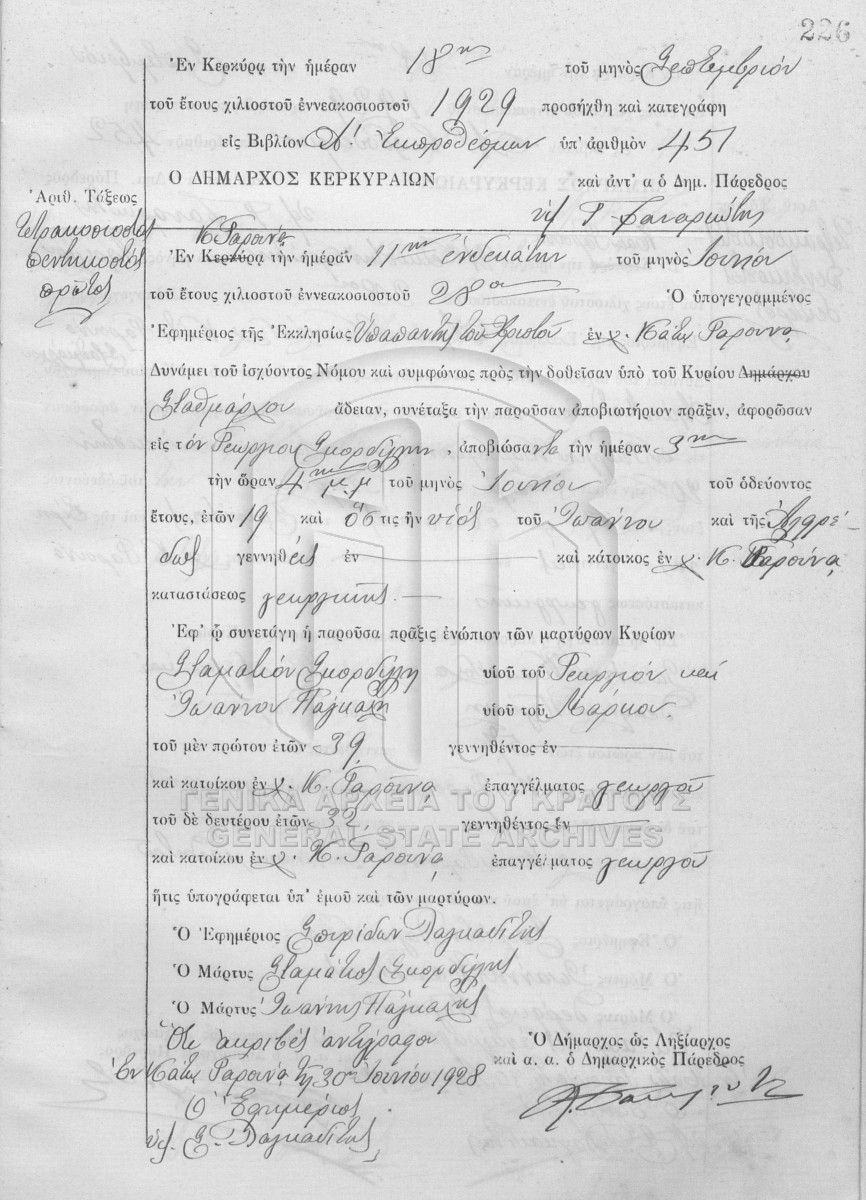 226
Ἐν Κερκύρᾳ τὴν ἡμέραν 18ην τοῦ μηνὸς Σεπτεμβρίου
τοῦ ἔτους χιλιοστοῦ ἐννεακοσιοστοῦ 1929 προσήχθη καὶ κατεγράφη
εἰς Βιβλίον Λ! Ἐκπροθέσμων ὑπ' ἀριθμὸν 451
Ο ΔΗΜΑΡΧΟΣ ΚΕΡΚΥΡΑΙΩΝ καὶ ἀντ' α ὁ Δημ. Πάρεδρος
Ἀριθ. Τάξεως
Τετρακοσιοστὸς
πεντηκοστὸς
πρῶτος
Κ. Γαρούνα
Ἐν Κερκύρᾳ τὴν ἡμέραν 11ην ἑνδεκάτην τοῦ μηνὸς Ἰουνίου
τοῦ ἔτους χιλιοστοῦ ἐννεακοσιοστοῦ 28ου Ὁ ὑπογεγραμμένος
Ἐφημέριος τῆς Ἐκκλησίας Ὑπαπαντῆς τοῦ Χριστοῦ ἐν χ. Κάτω Γαρούνα
Δυνάμει τοῦ ἰσχύοντος Νόμου καὶ συμφώνως πρὸς τὴν δοθεῖσαν ὑπὸ τοῦ Κυρίου Δημάρχου
Σταθμάρχου ἄδειαν, συνέταξα τὴν παροῦσαν ἀποβιωτήριον πρᾶξιν, ἀφορῶσαν
εἰς τὸν Γεώργιον Σκορδίλην, ἀποβιώσαντα τὴν ἡμέραν 3ην
τὴν ὥραν 4ην μ.μ τοῦ μηνὸς Ἰουνίου τοῦ ὁδεύοντος
ἔτους, ἐτῶν 19 καὶ ὅστις ἦν υἱὸς τοῦ Ἰωάννου καὶ τῆς
γεννηθεὶς ἐν καὶ κάτοικος ἐν χ. Κ. Γαρούνα
καταστάσεως γεωργικῆς
Ἐφ' ᾧ συνετάγη ἡ παροῦσα πρᾶξις ἐνώπιον τῶν μαρτύρων Κυρίων
Σταματίου Σκορδίλη υἱοῦ τοῦ Γεωργίου καὶ
Ἰωάννου υἱοῦ τοῦ Μάρκου.
τοῦ μὲν πρώτου ἐτῶν 39 γεννηθέντος ἐν
καὶ κατοίκου ἐν χ. Κ. Γαρούνα ἐπαγγέλματος γεωργοῦ
τοῦ δὲ δευτέρου ἐτῶν 32 γεννηθέντος ἐν
καὶ κατοίκου ἐν χ. Κ. Γαρούνα ἐπαγγέλματος γεωργοῦ
ΓΕΝΙΚΑ ΑΡΧΕΙΑ ΤΟΥ ΚΡΑΤΟΥΣ
GENERAL STATE ARCHIVES
ἥτις ὑπογράφεται ὑπ' ἐμοῦ καὶ τῶν μαρτύρων.
Ὁ Ἐφημέριος Σπυρίδων Λαγκαδίτης
Ὁ Μάρτυς Σταμάτιος Σκορδίλης
Ὁ Μάρτυς Ἰωάννης
Ὅτι ἀκριβὲς ἀντίγραφον
Ἐν Κάτω Γαρούνα τῇ 30ῃ Ἰουνίου 1928
Ὁ Ἐφημέριος
ὑπ. Σ. Λαγκαδίτης
Ὁ Δήμαρχος ὡς Ληξίαρχος
καὶ α. α. ὁ Δημαρχικὸς Πάρεδρος